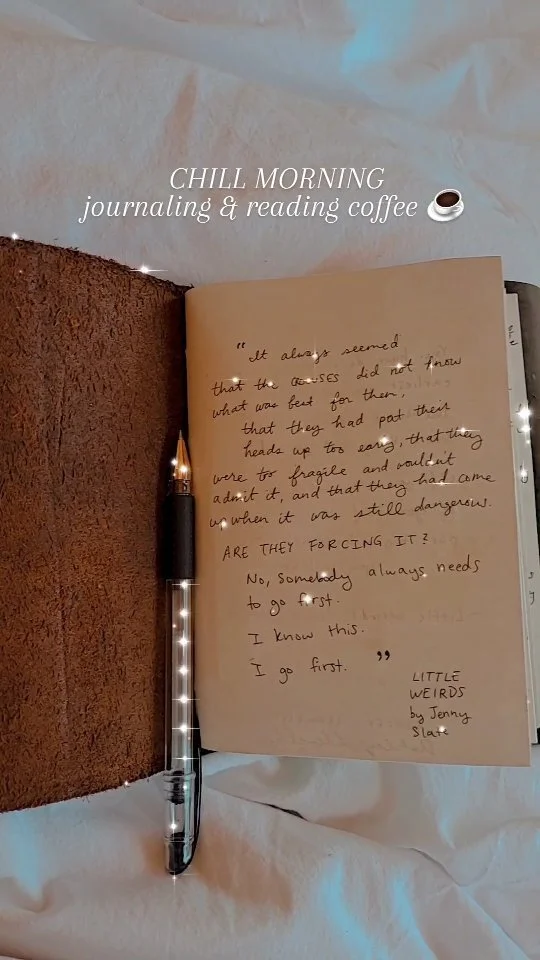 CHILL MORNING
journaling & reading coffee ☕
"It always seemed
that the crocuses did not know
what was best for them,
that they had put their
heads up too early, that they
were too fragile and wouldn't
admit it, and that they had come
up when it was still dangerous.
ARE THEY FORCING IT?
No, somebody always needs
to go first.
I know this.
I go first."
LITTLE
WEIRDS
by Jenny
Slate